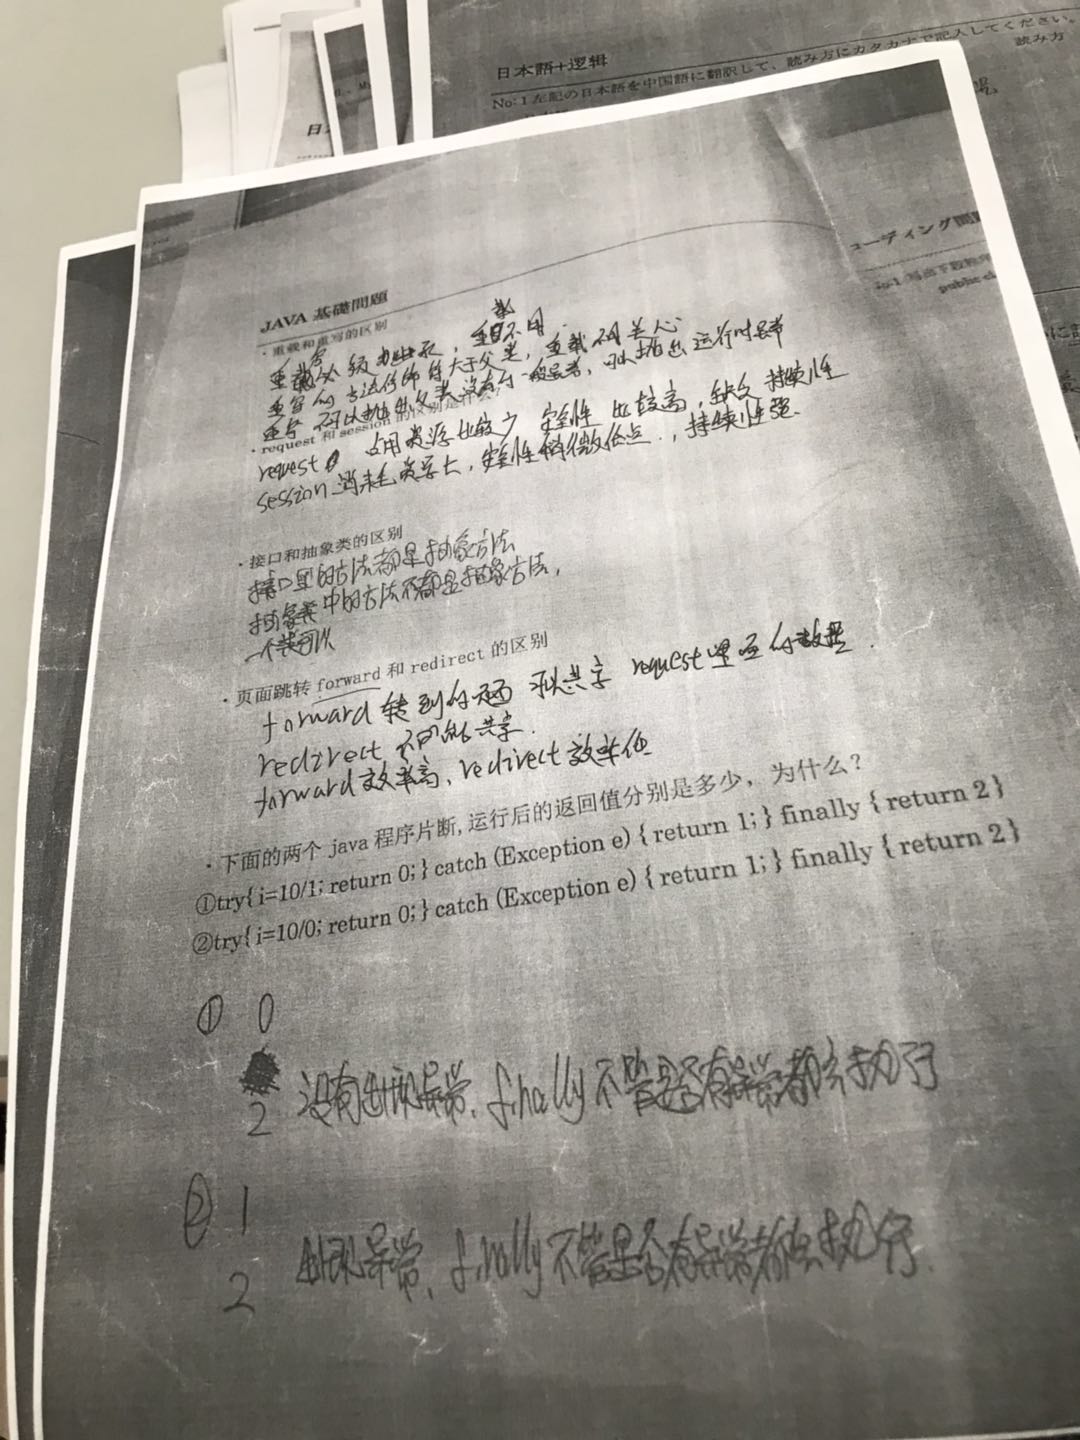 日本語+逻辑
No: 1 左記の日本語を中国語に翻訳して、読み方にカタカナで記入してください。
読み方
ューディング問題
public cl
JAVA 基礎問題
・重载和重写的区别
重写 级 重载不用
重写的方法修饰符大于父类，重载不用关心
重写不可以抛出父类没有的一般异常，可以抛出运行时异常
・request 和 session 的区别是什么？
request 占用资源比较少 安全性比较高，缺乏持续性
session 消耗资源大，安全性稍微低点，持续性强.
・接口和抽象类的区别
接口里的方法都是抽象方法
抽象类中的方法不都是抽象方法，
一个类可以
・页面跳转 forward 和 redirect 的区别
forward 转到的页面 可以共享 request里面的数据.
redirect 不能共享.
forward 效率高，redirect 效率低
・下面的两个 java 程序片断,运行后的返回值分别是多少，为什么？
①try{ i=10/1; return 0; } catch (Exception e) { return 1; } finally { return 2 }
②try{ i=10/0; return 0; } catch (Exception e) { return 1; } finally { return 2 }
① 0
2 没有出现异常，finally不管是否有异常都会执行
② 1
2 出现异常，finally不管是否有异常都会执行.